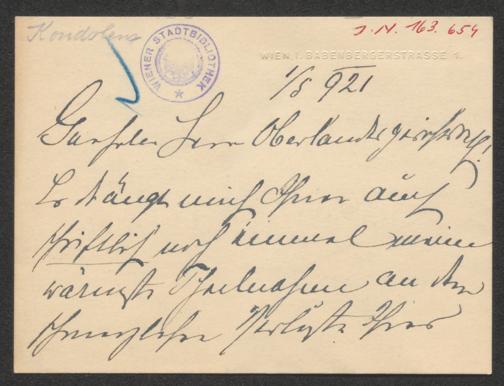 Kondolenz
J.N. 163.654
WIENER STADTBIBLIOTHEK
WIEN, I. BABENBERGERSTRASSE 1.
1/8 921
Geehrter Herr Oberlandesgerichtsrath!
Es drängt mich Ihnen auch
schriftlich noch einmal meine
wärmste Theilnahme an dem
schmerzlichen Verluste Ihres